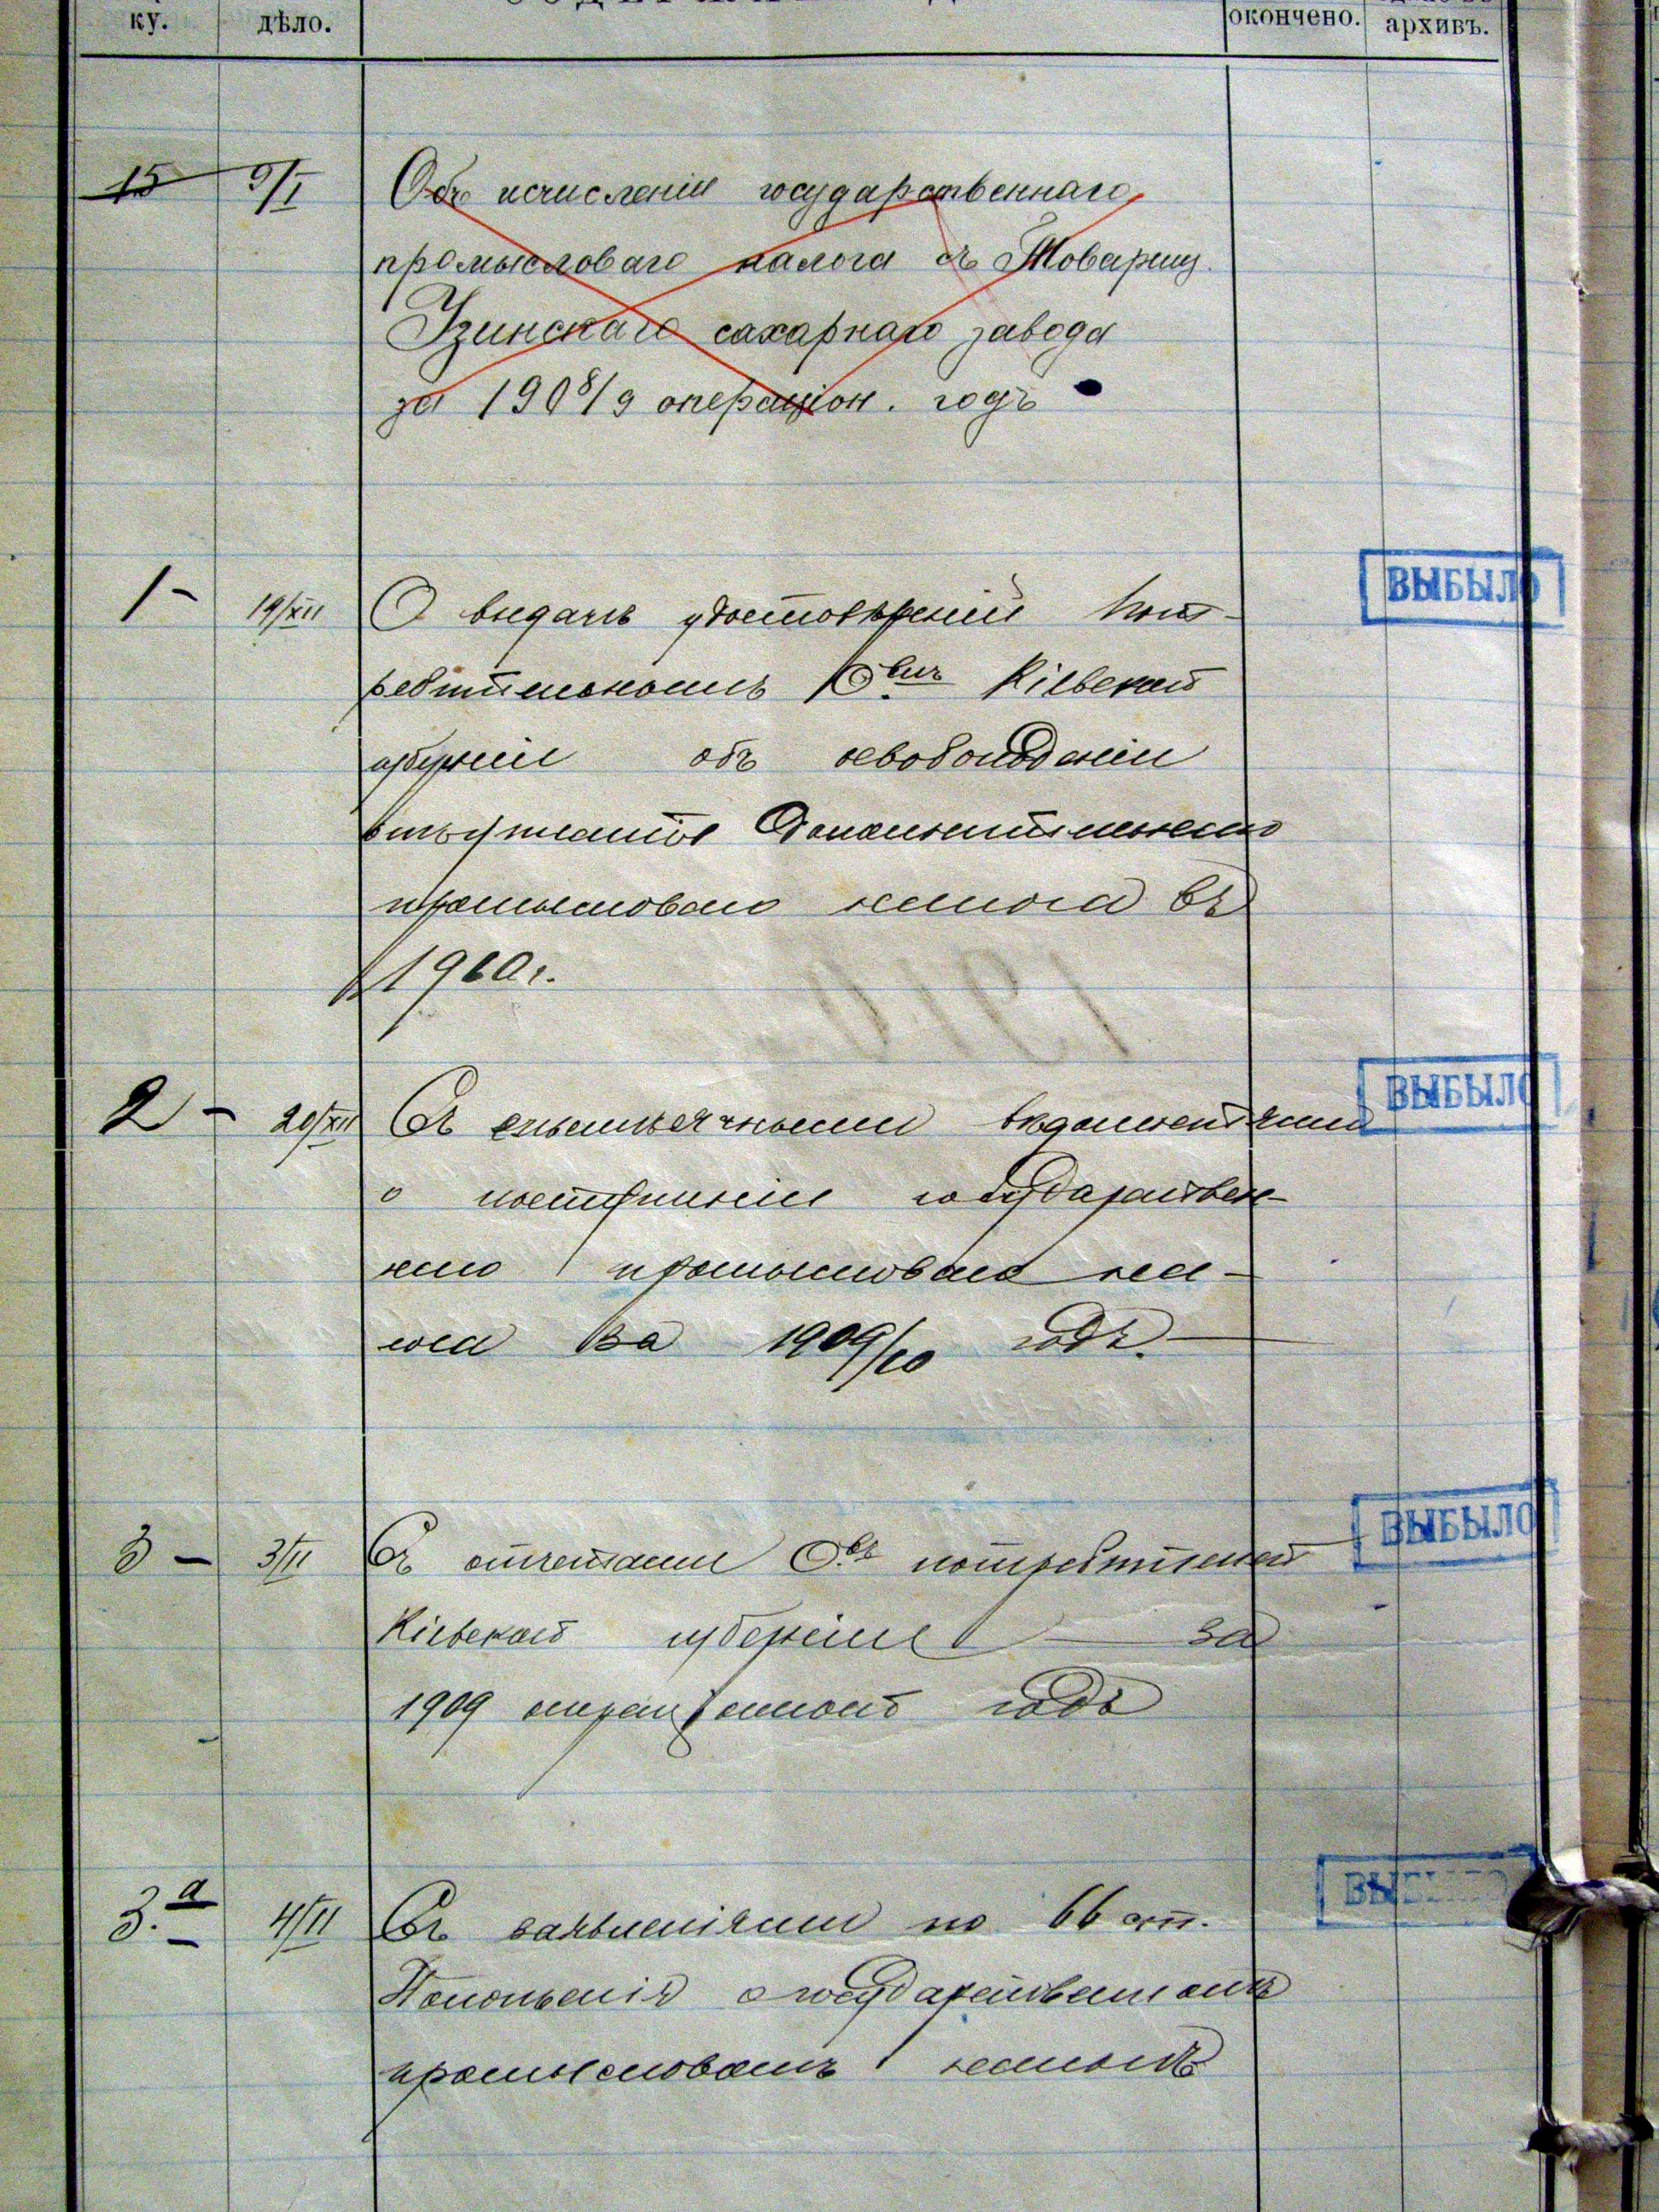 ку. дѣло. СОДЕРЖА окончено. архивъ.
15 9/I Объ исчисленіи государственнаго
промысловаго налога съ Товарищ.
Узинскаго сахарнаго завода
за 1908/9 операціон. годъ
1- 19/XII О выдачѣ удостовѣреній пот-
ВЫБЫЛО
ребительнымъ О-вамъ Кіевской
губерніи объ освобожденіи
отъ платежа дополнительнаго
промысловаго налога въ
1910 г.
2 - 20/XII Съ ежемѣсячными вѣдомостями
ВЫБЫЛО
о поступленіи государствен-
наго промысловаго на-
лога за 1909/10 годъ.
3 - 3/II Съ отчетами О-въ потребителей
ВЫБЫЛО
Кіевской губерніи за
1909 операціонный годъ
3.а 4/II Съ заявленіями по 66 ст.
ВЫБЫЛО
Положенія о государственномъ
промысловомъ налогѣ